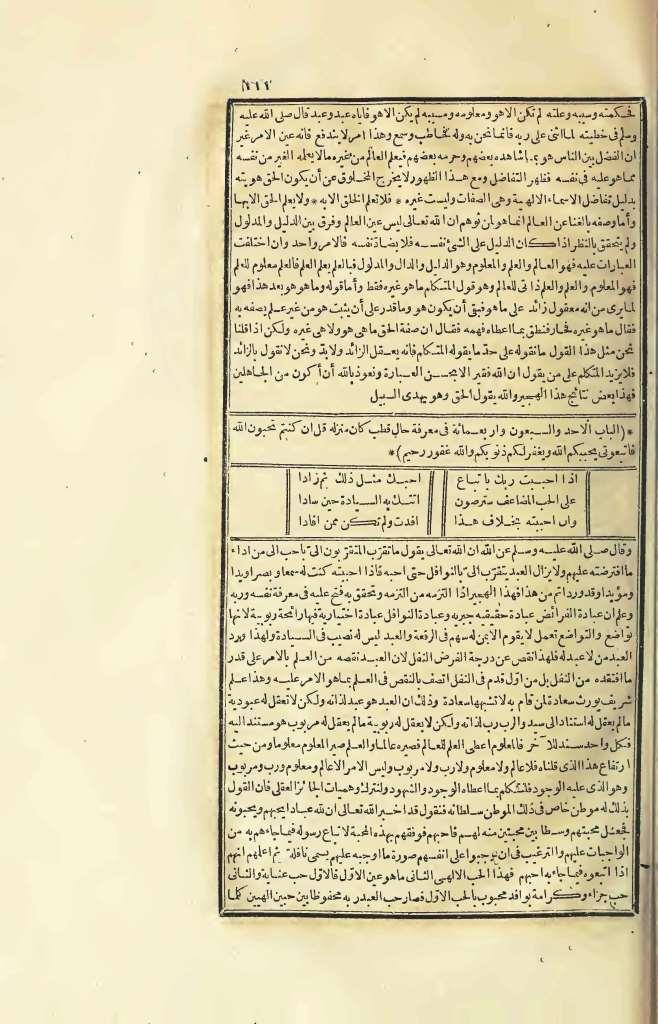 فى حكمته وسببه وعلته لم تكن الا هو ومعلومه ومسببه لم يكن الا هو فاياه عبد وعبد قال صلى الله عليه
وسلم فى خطبته لما اثنى على ربه فانما نحن به وله فخاطب وسمع وهذا امر لا يندفع فانه عين الامر غير
ان الفضل بين الناس هو بما شاهده بعضهم وحرمه بعضهم فيعلم العالم من غيره ما لا يعلمه الغير من نفسه
مما هو عليه فى نفسه فظهر التفاضل ومع هذا الظهور لا يخرج المخلوق عن أن يكون الحق هويته
بدليل تفاضل الاسماء الالهية وهى الصفات وليست غيره * فلا تعلم الخلق الا به * ولا يعلم الحق الا بها
وأما وصفه بالغنا عن العالم انما هو لمن توهم ان الله تعالى ليس عين العالم وفرق بين الدليل والمدلول
ولم يتحقق بالنظر اذا كان الدليل على الشئ نفسه فلا يضاد نفسه فالامر واحد وان اختلفت
العبارات عليه فهو العالم والعلم والمعلوم وهو الدليل والدال والمدلول فبالعلم يعلم العلم فالعلم معلوم للعلم
فهو المعلوم والعلم والعلم ذاتى للعالم وهو قول المتكلم ما هو غيره فقط وأما قوله وما هو هو بعد هذا فهو
لما يرى من انه معقول زائد على ما هو فبقى أن يكون هو وما قدر على أن يثبت هو من غير علم يصفه به
فقال ما هو غيره فحار فنطق بما اعطاه فهمه فقال ان صفة الحق ما هى هو ولا هى غيره ولكن اذا قلنا
نحن مثل هذا القول ما نقوله على حد ما يقوله المتكلم فانه يعقل الزائد ولا بد ونحن لا نقول بالزائد
فلا يزيد المتكلم على من يقول ان الله فقير الا بحسن العبارة ونعوذ بالله أن أكون من الجاهلين
فهذا بعض نتائج هذا الهجير والله يقول الحق وهو يهدى السبيل
*(الباب الاحد والسبعون واربعمائة فى معرفة حال قطب كان منزله قل ان كنتم تحبون الله
فاتبعونى يحببكم الله ويغفر لكم ذنوبكم والله غفور رحيم)*
اذا احببت ربك باتباع احبك مثل ذلك ثم زادا
على الحب المضاعف سترصون اتتك به السيادة حين سادا
وان احببته بخلاف هذا افدت ولم تكن ممن افادا
وقال صلى الله عليه وسلم عن الله ان الله تعالى يقول ما تقرب المتقربون الى باحب الى من اداء
ما افترضته عليهم ولا يزال العبد يتقرب الى بالنوافل حتى احبه فاذا احببته كنت له سمعا وبصرا ويدا
ومؤيدا وقد ورد اتم من هذا فهذا الهجير اذا التزمه من التزمه وتحقق به فتح عليه فى معرفة نفسه وربه
وعلم ان عبادة الفرائض عبادة حقيقيه جبريه وعبادة النوافل عبادة اختيارية فيها رائحة ربوبية لانها
تواضع والتواضع تعمل لا يقوم الا بمن له سهم فى الرفعة والعبد ليس له نصيب فى السيادة ولهذا ورد
العبد من لا عبد له فلهذا نقص عن درجة الفرض النفل لان العبد نقصه من العلم بالامر على قدر
ما افتقده من النفل بل من اول قدم فى النفل اتصف بالنقص فى العلم بما هو الامر عليه وهذا علم
شريف يورث سعادة لمن قام به لا تشبهها سعادة وذلك ان العبد هو عبد لذاته ولكن لا تعقل له عبودية
ما لم يعقل له استناد الى سيد والرب رب لذاته ولكن لا يعقل له ربوبية ما لم يعقل له مربوب هو مستند اليه
فكل واحد سند للآخر فالمعلوم اعطى العلم للعالم فصيره عالما والعلم صير المعلوم معلوما ومن حيث
ارتفاع هذا الذى قلناه فلا عالم ولا معلوم ولا رب ولا مربوب وليس الامر الا عالم ومعلوم ورب ومربوب
وهو الذى عليه الوجود فلنتكلم بما اعطاه الوجود والشهود ولنترك وهميات الجائز العقلى فان القول
بذلك له موطن خاص فى ذلك الموطن سلطانه فنقول قد اخبر الله تعالى ان لله عبادا يحبهم ويحبونه
فجعل محبتهم وسطا بين محبتين منه لهم فاحبهم فوفقهم بهذه المحبة لاتباع رسوله فيما جاءهم به من
الواجبات عليهم والترغيب فى ان يوجبوا على انفسهم صورة ما اوجبه عليهم يسمى نافلة ثم اعلمهم انهم
اذا اتبعوه فيما جاء به احبهم فهذا الحب الالهى الثانى ما هو عين الاول فالاول حب عناية والثانى
حب جزاء وكرامة بوافد محبوب بالحب الاول فصار حب العبد ربه محفوظا بين حبين الهيين كلما